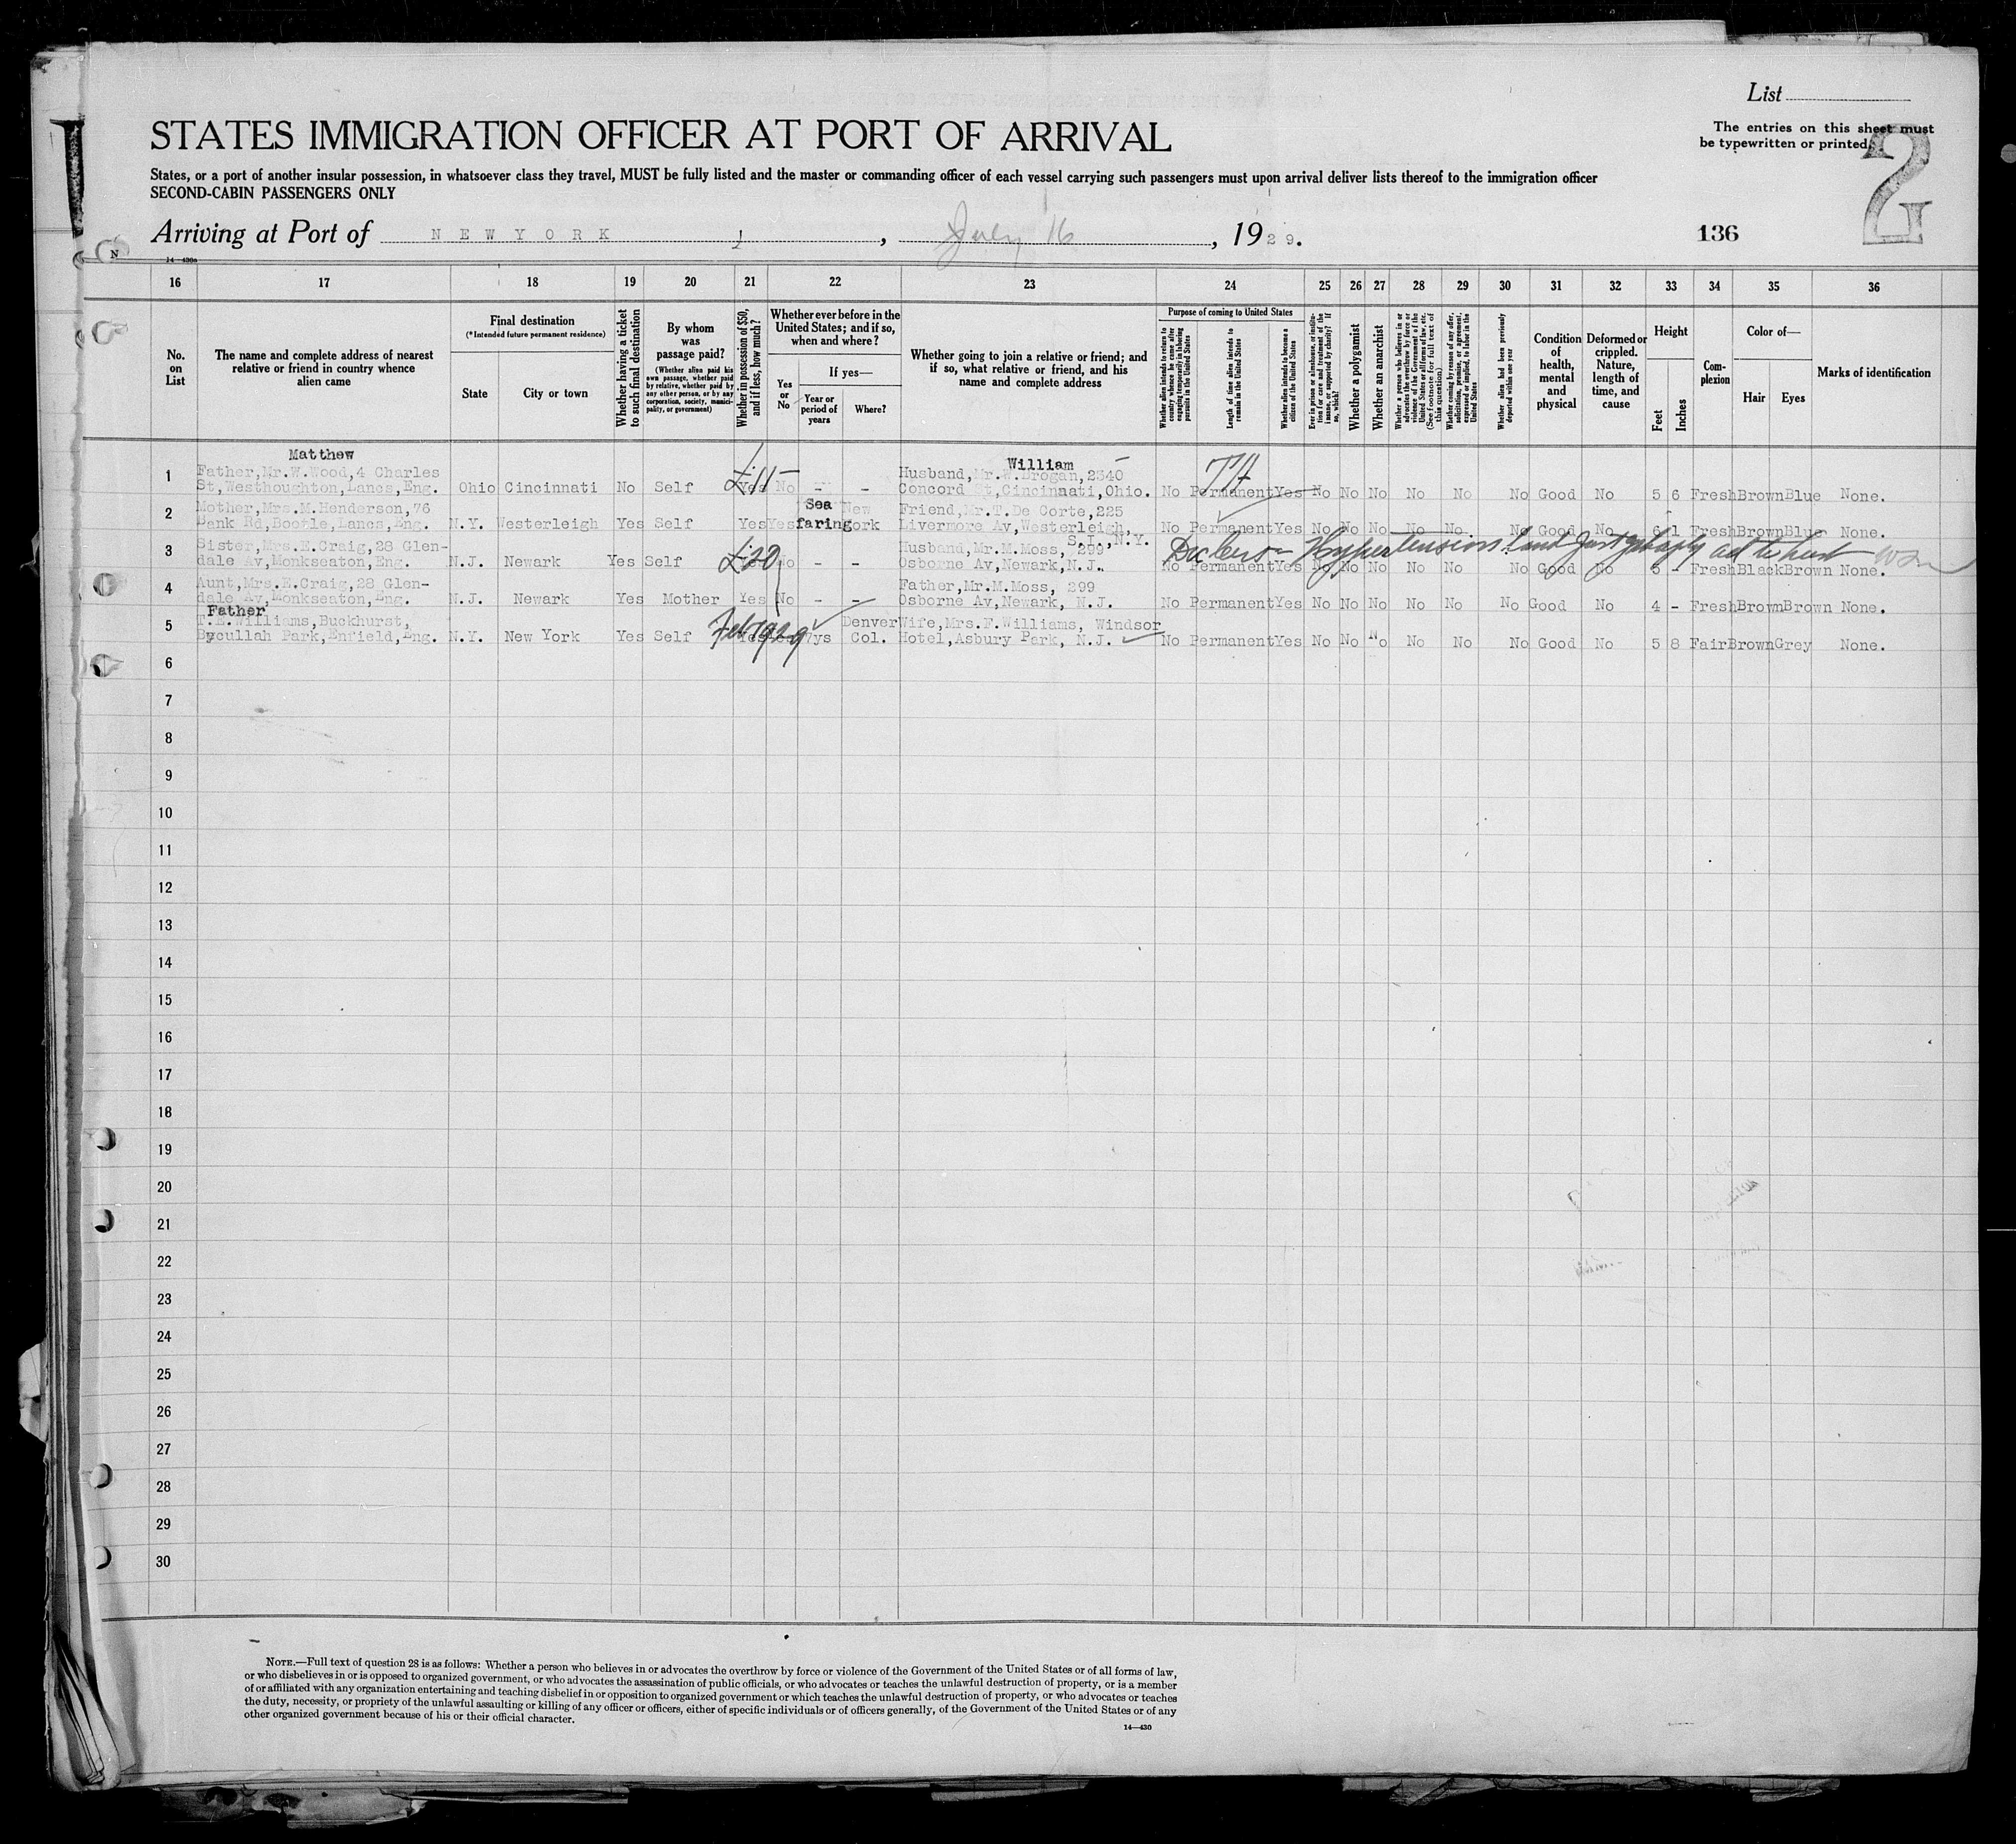 List
STATES IMMIGRATION OFFICER AT PORT OF ARRIVAL
The entries on this sheet must
be typewritten or printed.
2
States, or a port of another insular possession, in whatsoever class they travel, MUST be fully listed and the master or commanding officer of each vessel carrying such passengers must upon arrival deliver lists thereof to the immigration officer
SECOND-CABIN PASSENGERS ONLY
Arriving at Port of NEW YORK, July 16, 1929.
136
16 17 18 19 20 21 22 23 24 25 26 27 28 29 30 31 32 33 34 35 36
No. on List
The name and complete address of nearest relative or friend in country whence alien came
Final destination
(*Intended future permanent residence)
State
City or town
Whether having a ticket to such final destination
By whom was passage paid?
(Whether alien paid his own passage, whether paid by relative, whether paid by any other person, or by any corporation, society, municipality, or government)
Whether in possession of $50, and if less, how much?
Whether ever before in the United States; and if so, when and where?
Yes or No
If yes—
Year or period of years
Where?
Whether going to join a relative or friend; and if so, what relative or friend, and his name and complete address
Purpose of coming to United States
Whether alien intends to return to country whence he came after engaging temporarily in laboring pursuits in the United States
Length of time alien intends to remain in the United States
Whether alien intends to become a citizen of the United States
Ever in prison or almshouse, or institution for care and treatment of the insane, or supported by charity? If so, which?
Whether a polygamist
Whether an anarchist
Whether a person who believes in or advocates the overthrow by force or violence of the Government of the United States or all forms of law, etc. (See footnote for full text of this question)
Whether coming by reason of any offer, solicitation, promise, or agreement, expressed or implied, to labor in the United States
Whether alien had been previously deported within one year
Condition of health, mental and physical
Deformed or crippled. Nature, length of time, and cause
Height
Feet
Inches
Complexion
Color of—
Hair
Eyes
Marks of identification
Matthew William
1 Father,Mr.W.Wood,4 Charles St,Westhoughton,Lancs,Eng. Ohio Cincinnati No Self Yes £11 No - - Husband,Mr.W.Brogan,2340 Concord St,Cincinnati,Ohio. No Permanent Yes No No No No No No Good No 5 6 Fresh Brown Blue None.
2 Mother,Mrs.M.Henderson,76 Bank Rd,Bootle,Lancs,Eng. N.Y. Westerleigh Yes Self Yes Yes Sea faring New York Friend,Mr.T.De Corte,225 Livermore Av,Westerleigh, S.I.,N.Y. No Permanent Yes No No No No No No Good No 6 1 Fresh Brown Blue None.
3 Sister,Mrs.E.Craig,28 Glendale Av,Monkseaton,Eng. N.J. Newark Yes Self £20 No - - Husband,Mr.M.Moss, 299 Osborne Av,Newark,N.J. No Permanent Yes No No No No No No Good No 5 - Fresh Black Brown None.
Hypertension
4 Aunt,Mrs.E.Craig,28 Glendale Av,Monkseaton,Eng. N.J. Newark Yes Mother Yes No - - Father,Mr.M.Moss, 299 Osborne Av,Newark, N.J. No Permanent Yes No No No No No No Good No 4 - Fresh Brown Brown None.
5 Father T.E.Williams,Buckhurst, Bycullah Park,Enfield,Eng. N.Y. New York Yes Self Yes Feb 1929 Denver Col. Wife,Mrs.F.Williams, Windsor Hotel,Asbury Park, N.J. No Permanent Yes No No No No No No Good No 5 8 Fair Brown Grey None.
6
7
8
9
10
11
12
13
14
15
16
17
18
19
20
21
22
23
24
25
26
27
28
29
30
NOTE.—Full text of question 28 is as follows: Whether a person who believes in or advocates the overthrow by force or violence of the Government of the United States or of all forms of law,
or who disbelieves in or is opposed to organized government, or who advocates the assassination of public officials, or who advocates or teaches the unlawful destruction of property, or is a member
of or affiliated with any organization entertaining and teaching disbelief in or opposition to organized government or which teaches the unlawful destruction of property, or who advocates or teaches
the duty, necessity, or propriety of the unlawful assaulting or killing of any officer or officers, either of specific individuals or of officers generally, of the Government of the United States or of any
other organized government because of his or their official character.
14—430